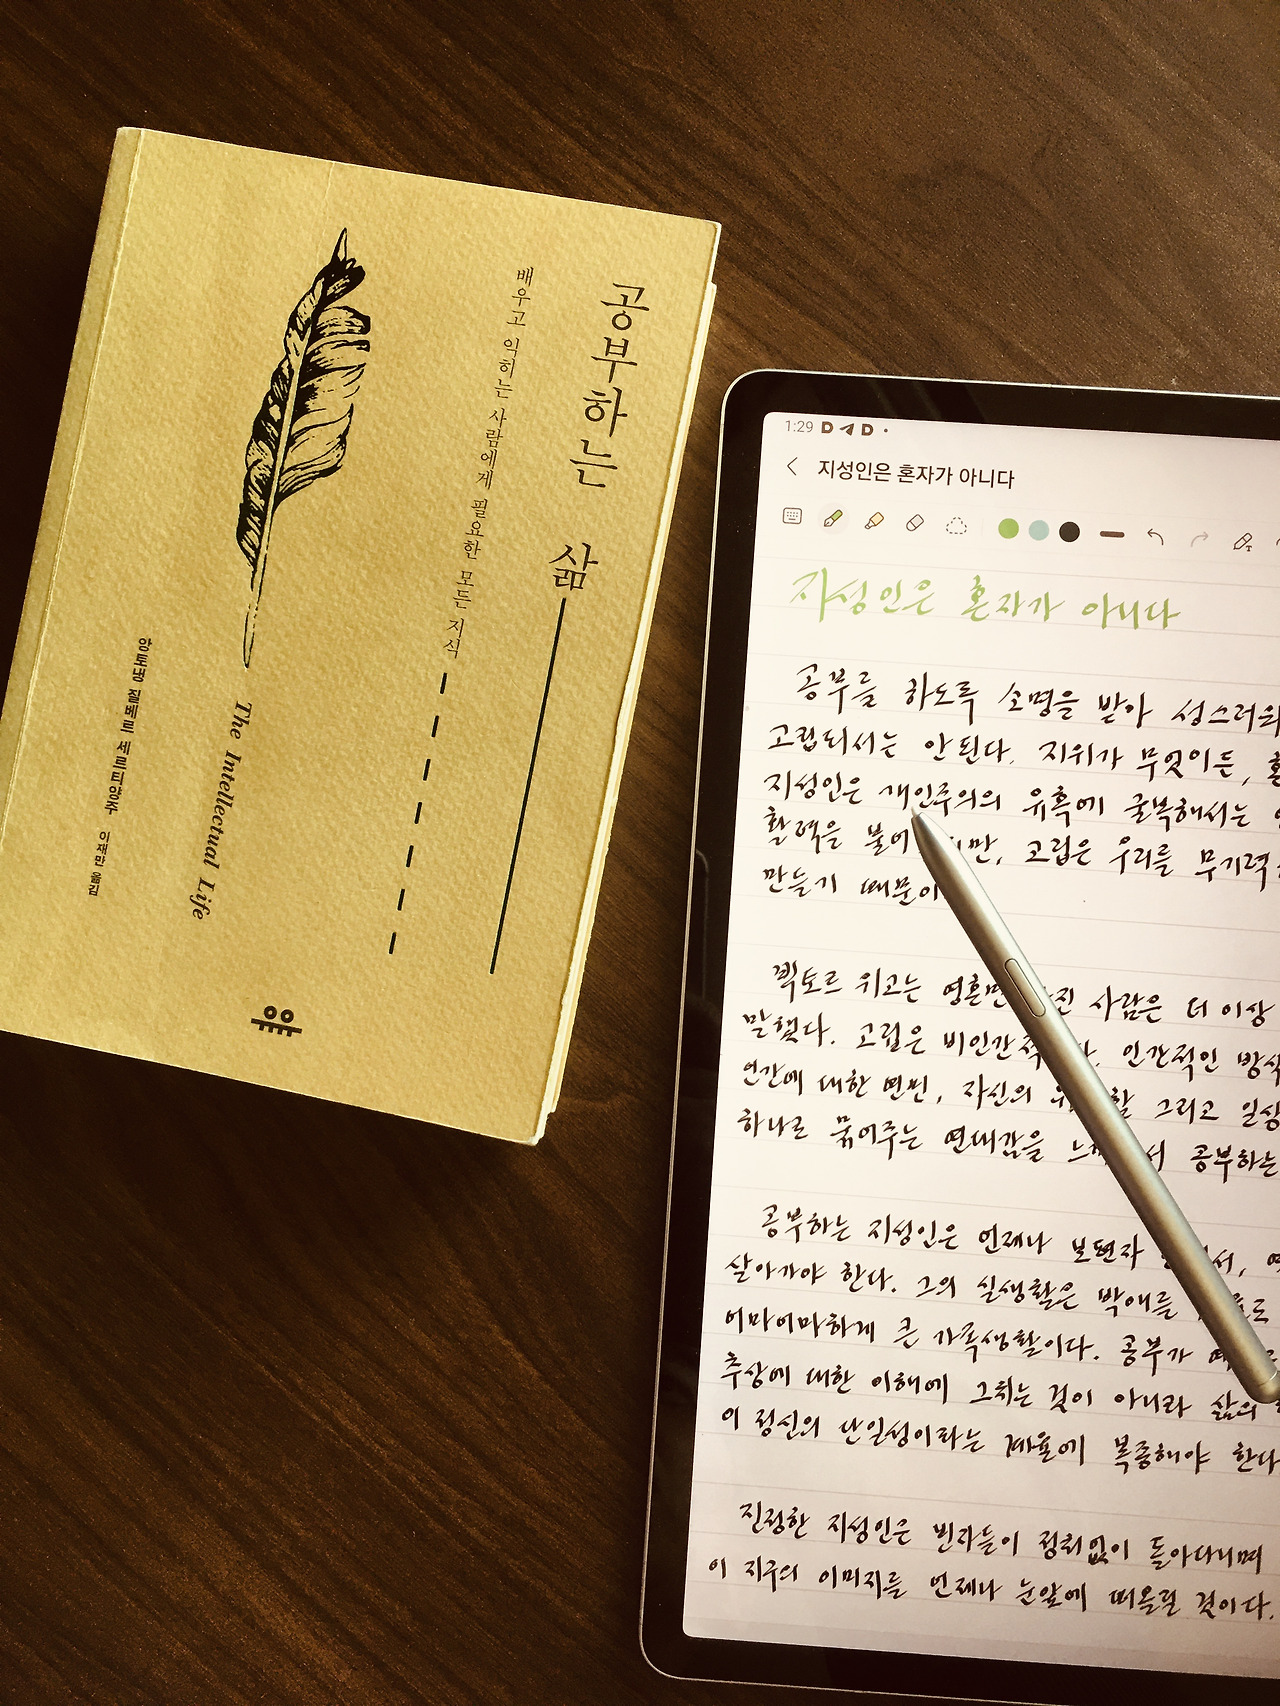 공부하는 삶
배우고 익히는 사람에게 필요한 모든 지식
The Intellectual Life
앙토냉 질베르 세르티양주
이재만 옮김
유유
1:29
지성인은 혼자가 아니다
지성인은 혼자가 아니다
공부를 하도록 소명을 받아 성스러워
고립되서는 안된다. 지위가 무엇이든,
지성인은 개인주의의 유혹에 굴복해서는
활력을 불어 만, 고립은 우리를 무기력
만들기 때문이
빅토르 위고는 영혼만 진 사람은 더 이상
말했다. 고립은 비인간적 . 인간적인 방식
인간에 대한 연민, 자신의 그리고 일상
하나로 묶어주는 연대감을 서 공부하는
공부하는 지성인은 언제나 보편자 서,
살아가야 한다. 그의 실생활은 박애를
어마어마하게 큰 가족생활이다. 공부가
추상에 대한 이해에 그치는 것이 아니라 삶의
이 정신의 단일성이라는 계율에 복종해야 한다
진정한 지성인은 빈자들이 정처없이 돌아다니며
이 지구의 이미지를 언제나 눈앞에 떠올릴 것이다.